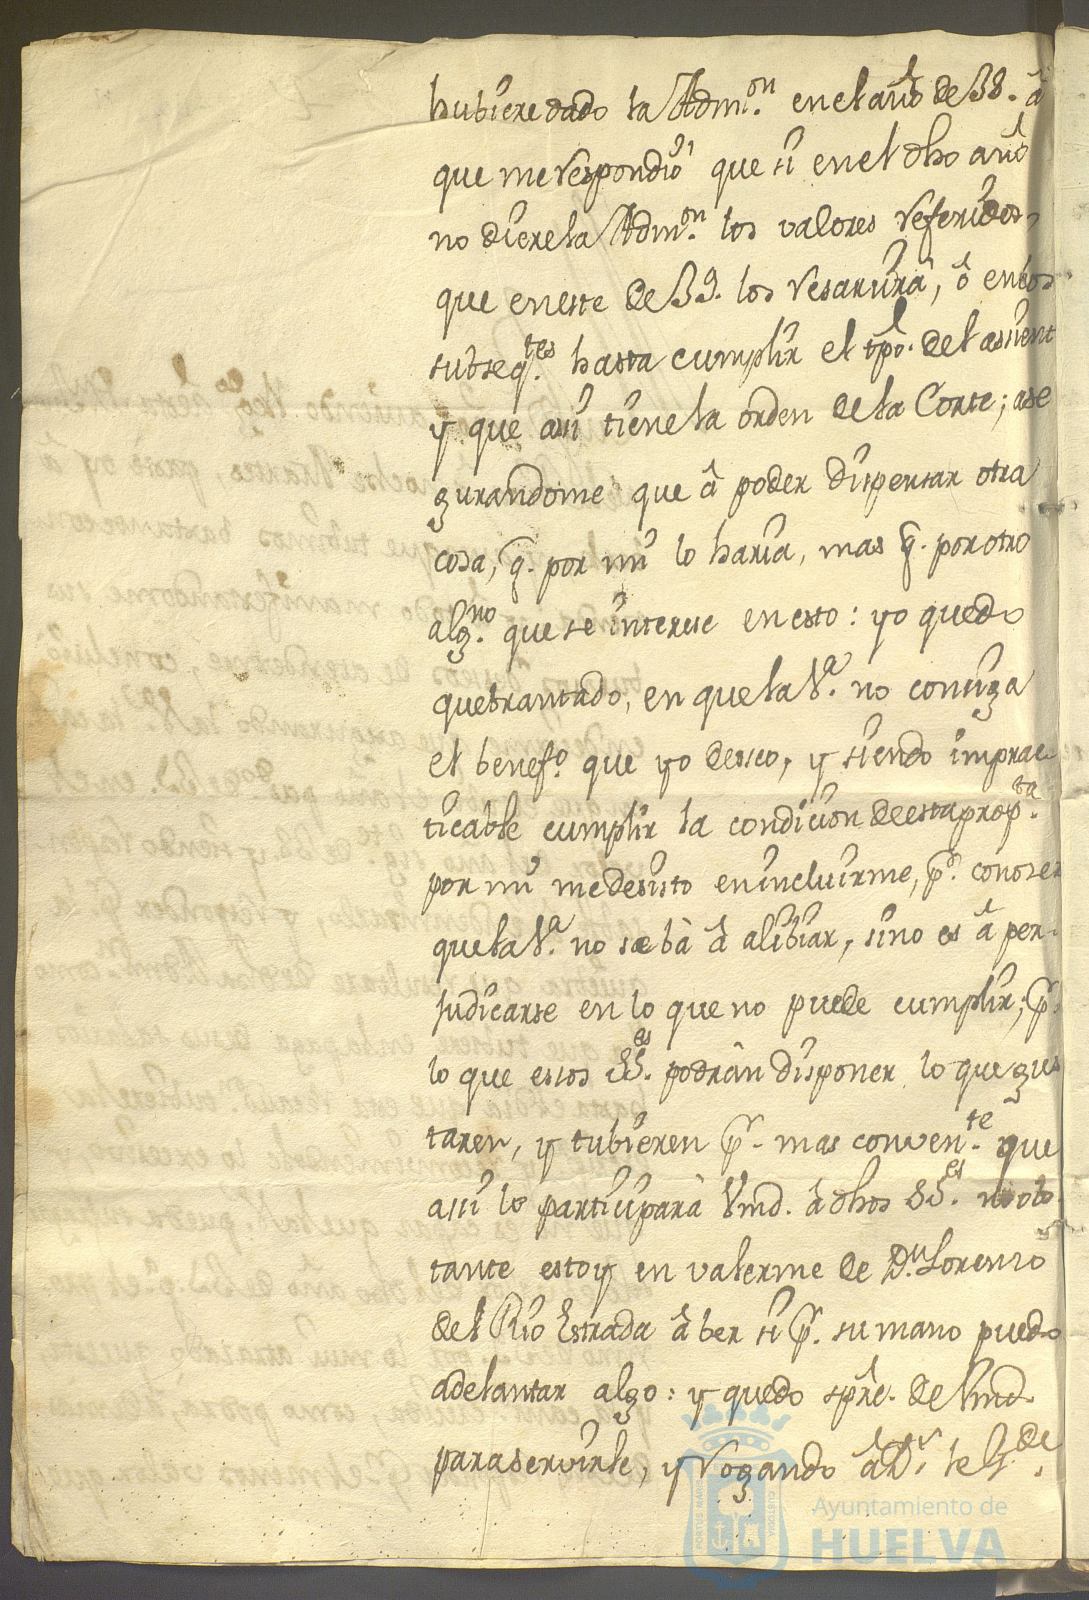 hubiere dado la Adm.on en el año de 38. â
que me respondiò que si en el dho año
no diere la Adm.on los valores referidos,
que en este de 39. los resarurâ, ô en los
subseq.tes hasta cumplir el tpõ. del assient
y que assi tiene la orden de la Corte; ase
gurandome que â poder dispensar otra
cosa, q̃. por mi lo haria, mas q̃. por otro
alg.no que se interese en esto: yo quedo
quebrantado, en que la V.a no consiga
el benef.o que yo deseo, y siendo imprac
ticable cumplir la condicion de esta prop.ta
por mi me desisto en incluirme, p.r conoser
que la V.a no se bà â alibiar, sino es â per-
judicarse en lo que no puede cumplir; p.r
lo que essos SS.es podràn disponer lo que gus
taren, y tubieren p.r mas conven.te que
assi lo participarà Vmd. â dhos SS.es no obs
tante estoy en valerme de D.n Lorenzo
del Rio Estrada â ber si p.r su mano puedo
adelantar algo: y quedo spre. de Vmd
para servirle, y rogando â D.s le g.de
Ayuntamiento de
HUELVA